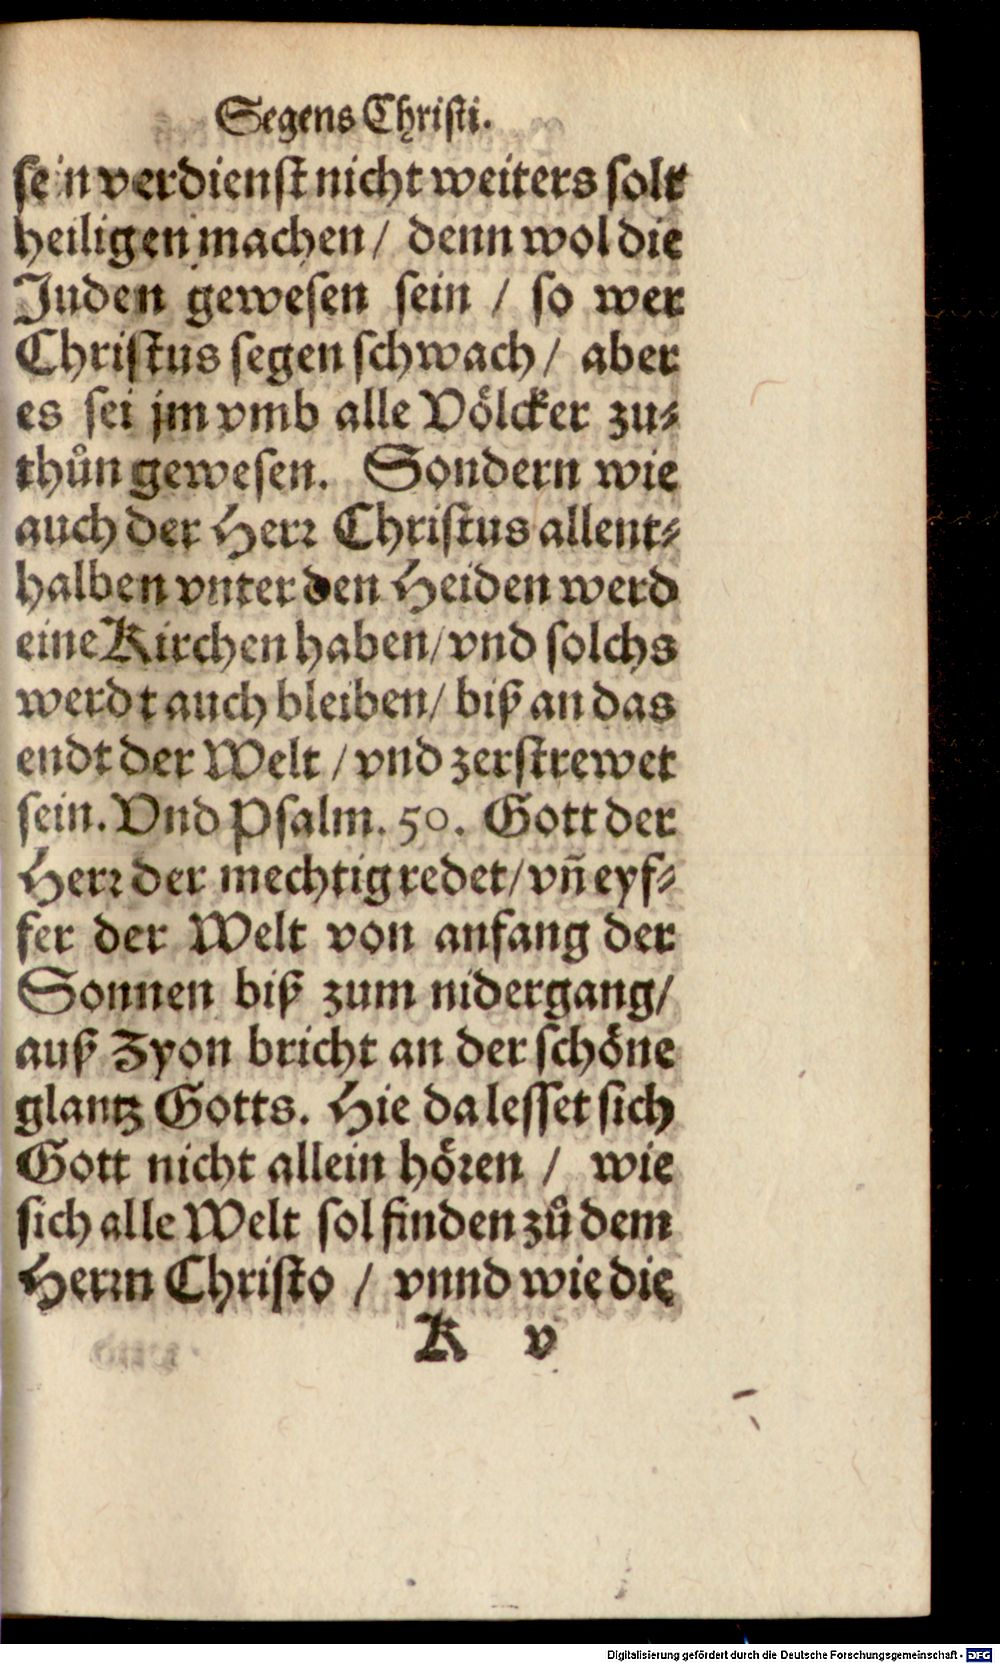 Segens Chriſti.
ſein verdienſt nicht weiters ſolt
heiligen machen / denn wol die
Juden gewesen ſein / ſo wer
Chriſtus ſegen ſchwach / aber
es ſei jm vmb alle Völcker zu⸗
thůn geweſen. Sondern wie
auch der Herꝛ Chriſtus allent⸗
halben vnter den Heiden werd
eine Kirchen haben / vnd ſolchs
werdt auch bleiben / biß an das
endt der Welt / vnd zerſtrewet
ſein. Vnd Pſalm. 50. Gott der
Herꝛ der mechtig redet / vñ eyf⸗
fer der Welt von anfang der
Sonnen biß zum nidergang /
auß Zyon bricht an der ſchöne
glantz Gotts. Hie da leſſet ſich
Gott nicht allein höꝛen / wie
ſich alle Welt ſol finden zů dem
Herꝛn Chriſto / vnnd wie die
K v
Digitalisierung gefördert durch die Deutsche Forschungsgemeinschaft - DFG